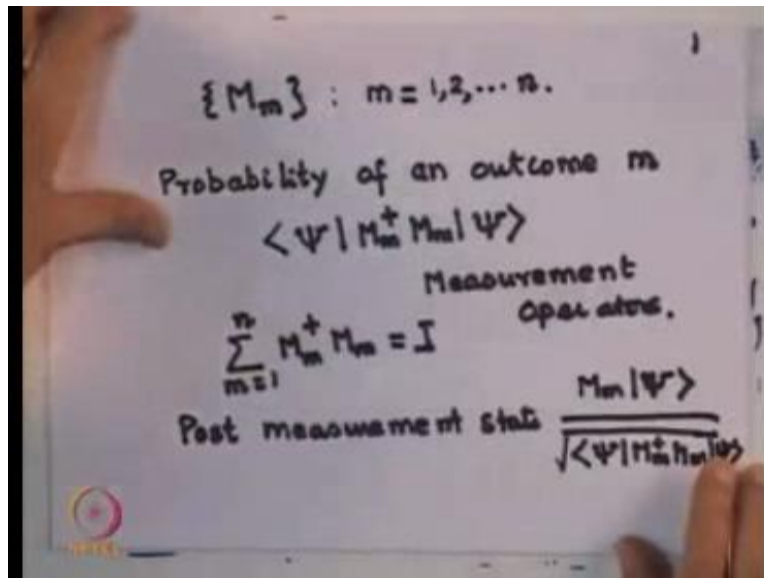 1
{Mₘ} : m = 1,2,... n.
Probability of an outcome m
<Ψ| Mₘ⁺ Mₘ |Ψ>
Measurement
Operators.
∑ₘ₌₁ⁿ Mₘ⁺ Mₘ = I
Post measurement state Mₘ|Ψ> / √<Ψ|Mₘ⁺ Mₘ|Ψ>